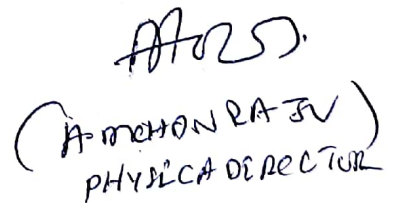 (A. MOHON RAJU)
PHYSICA DIRECTUR